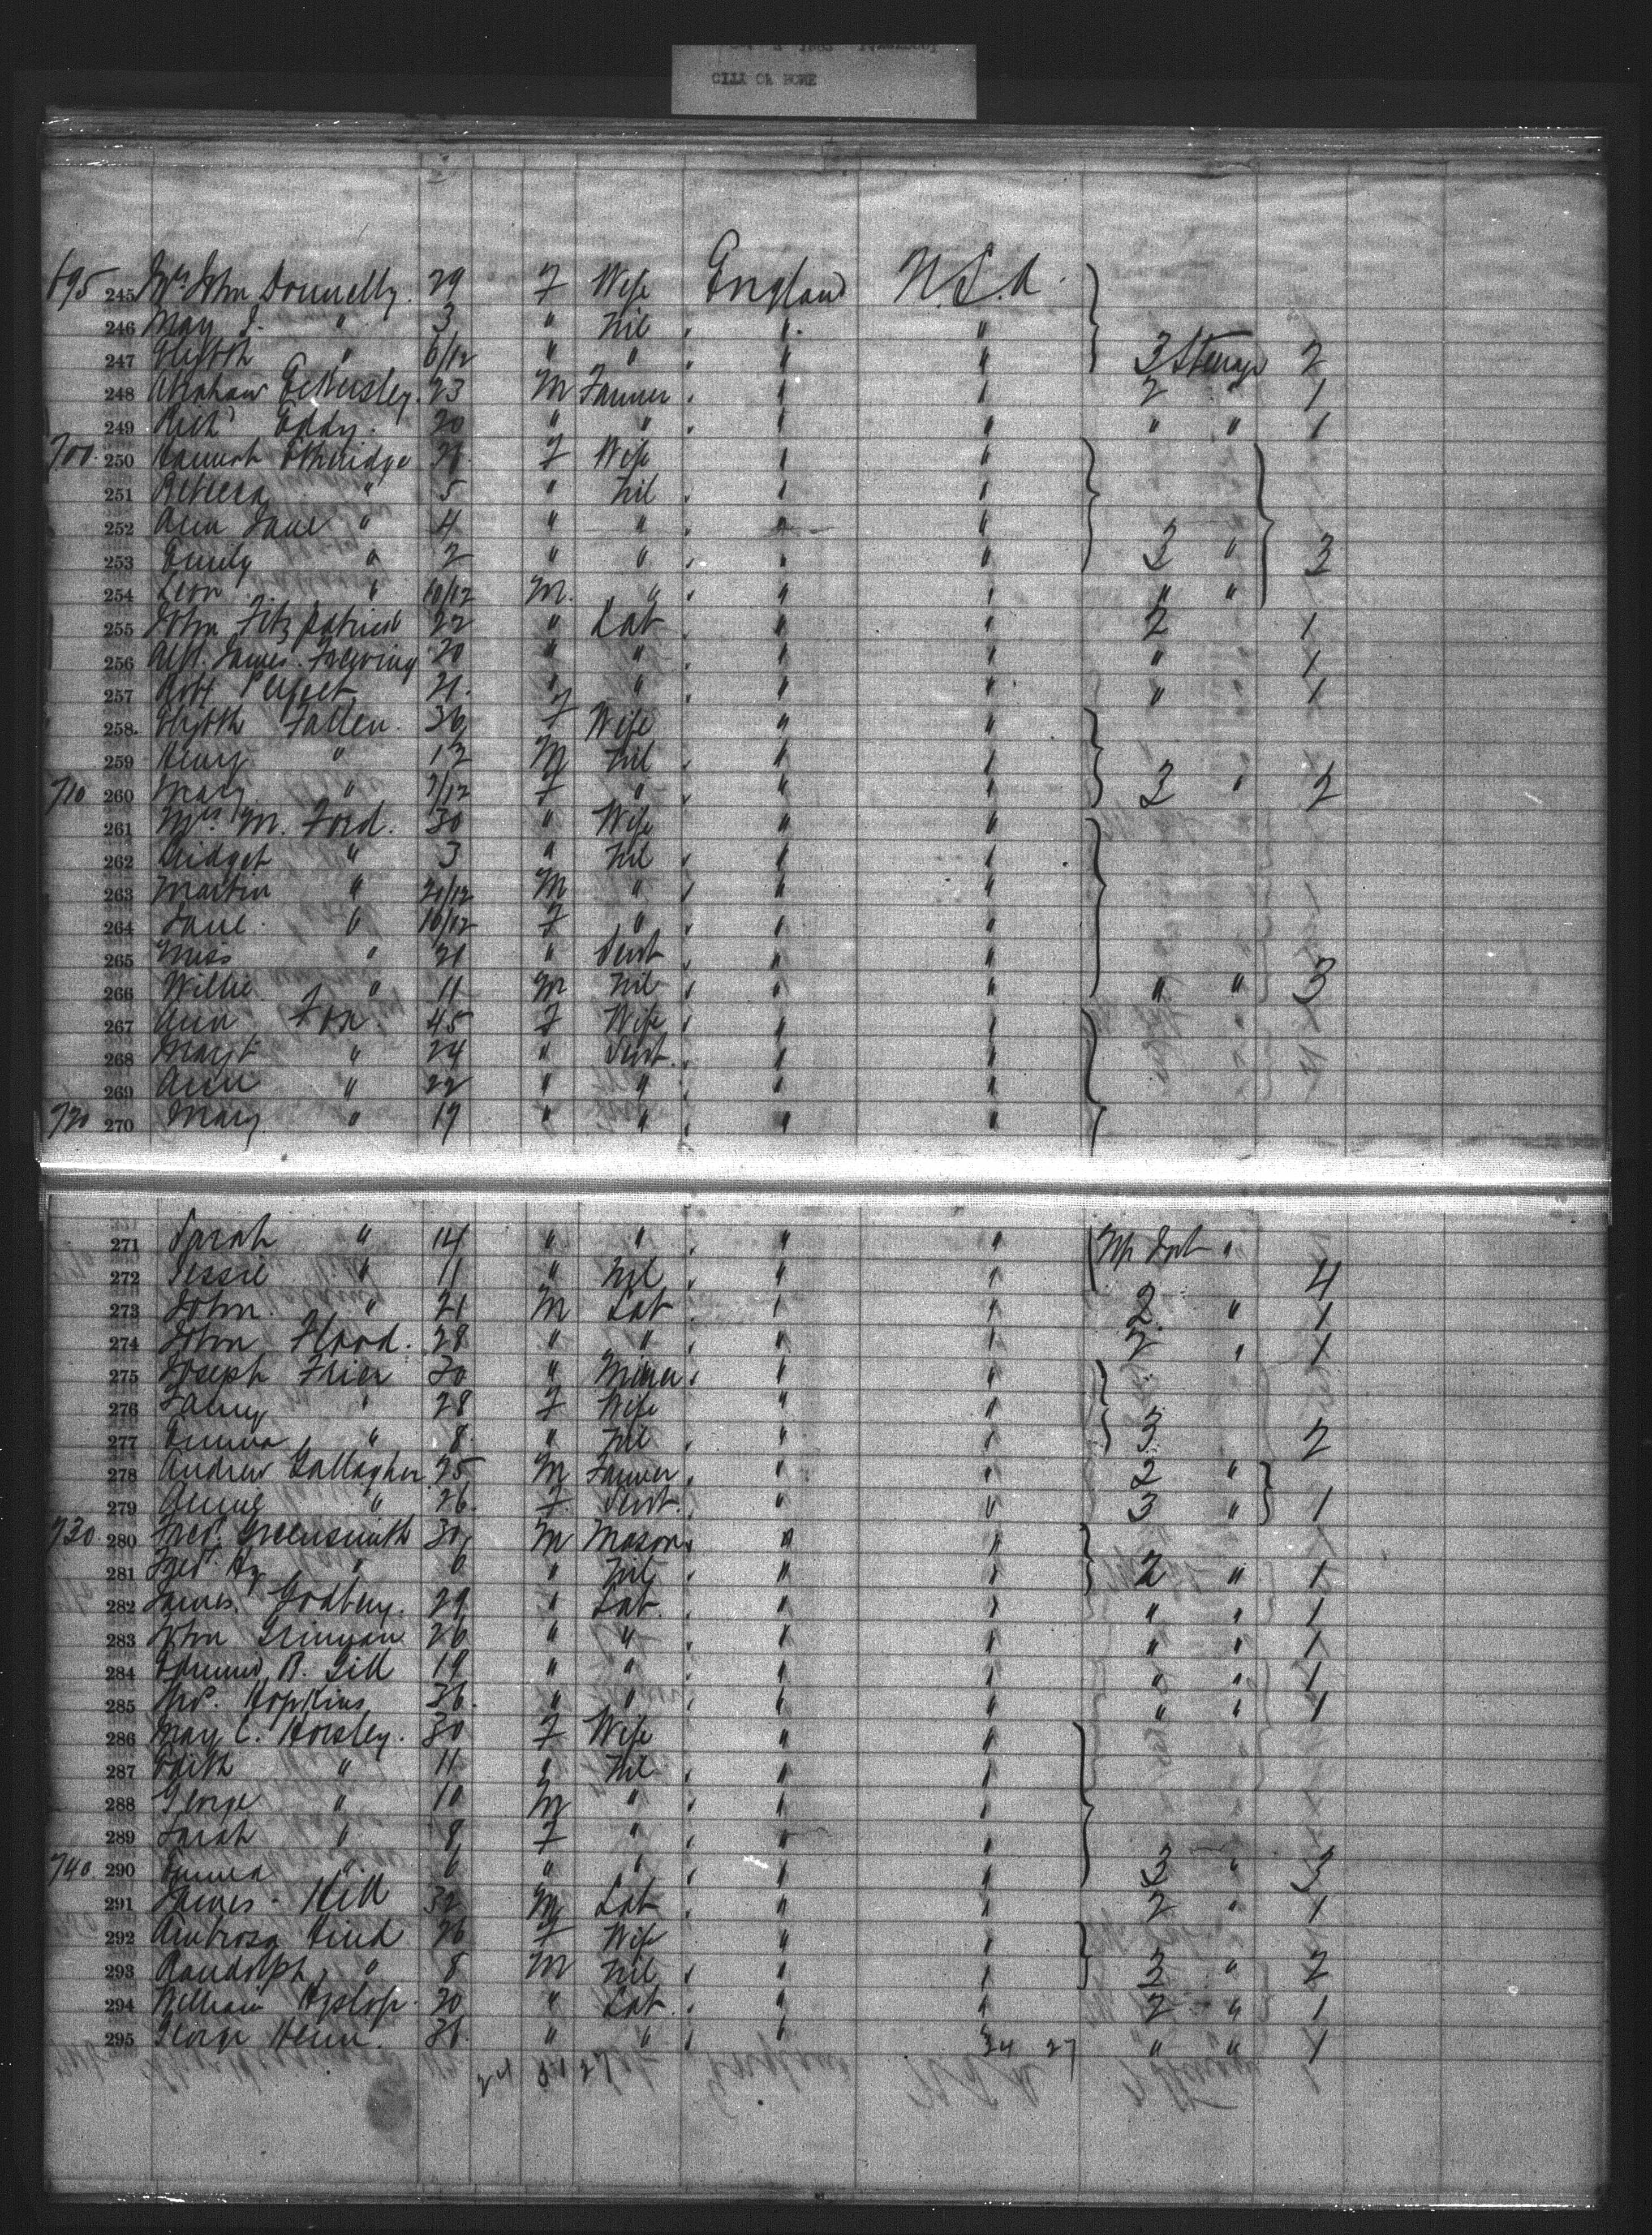 CITY OF ROME
695 245 Mrs John Donnelly. 29 F Wife England U.S.A.
246 May J. " 3 " Nil " "
247 Elizbth " 6/12 " " " " 3 Steerage 2
248 Abraham Eckersley. 23 M Farmer " " 2 " 1
249 Richd Eddy. 20 " " " " " " 1
700 250 Hannah Etheridge F Wife " "
251 Rebecca " 5 " Nil " "
252 Ann Jane " 4 " " " "
253 Emily " 2 " " " " 3 " 3
254 Leon " 10/12 M. " " " " "
255 John Fitzpatrick 22 " Lab " " 2 1
256 James 20 " " " " " 1
257 Robt 21. " " " " " " 1
258. Elizbth Fallen. 36 F Wife " "
259 Henry " M Nil " "
710 260 Mary " F " " " 3 " 2
261 Mrs M. Ford. 30 " Wife " "
262 Bridget " 3 " Nil " "
263 Martin " M " " "
264 Jane. " 10/12 F " " "
265 Miss " 21 " Servt " "
266 Willie " 11 M Nil " " " " 3
267 Ann Fox 45 F Wife " "
268 Margt " 24 " Servt. " "
269 Ann " 22 " " " "
720 270 Mary " 19 " " " "
271 Sarah " 14 " " " " "
272 Jessie " 11 " Nil " " 4
273 John. " 21 M Lab " " 2 " 1
274 John Flood. 28 " " " " 2 " 1
275 Joseph Frier 30 " Miner " "
276 28 F Wife " "
277 Emma " 8 " Nil " " 3 2
278 Andrew Gallagher 25 M Farmer " " 2 "
279 Annie " 26. F Servt. " " 3 " 1
730 280 Fredk Greensmith 30 M Mason " "
281 Fredk Hy " 6 " Nil " " 2 " 1
282 James 29 " Lab. " " " " 1
283 John 26 " " " " " " 1
284 Edmund B. Gill 19 " " " " " " 1
285 Hopkins 36. " " " " " " 1
286 Mary C. Horsley. 30 F Wife " "
287 Edith " 11 " Nil " "
288 George " 10 M " " "
289 Sarah " 8 F " " "
740 290 Emma " 6 " " " " 3 " 3
291 James Hill 32 M Lab " " 2 " 1
292 Ambrosa Hind 26 F Wife " "
293 Randolph " 8 M Nil " " 3 " 2
294 William Hyslop. 30 " Lab. " " 2 " 1
295 George 36. " " " 24 27 " " 1